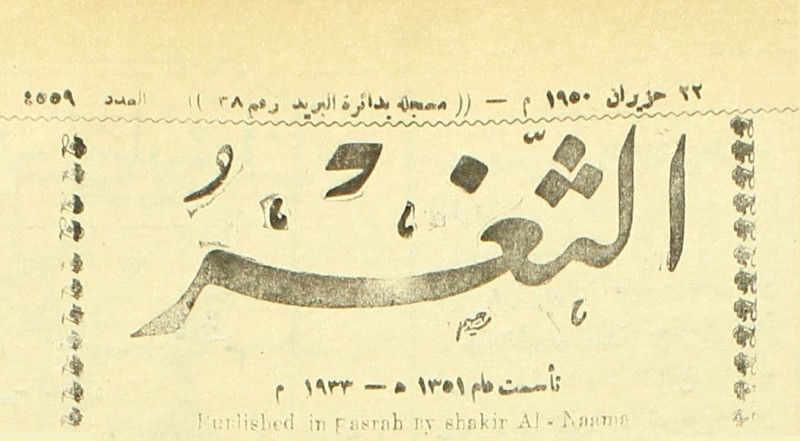 ٢٢ حزيران ١٩٥٠ م — (( مسجلة بدائرة البريد رقم ٣٨ )) العدد ٤٥٥٩
الثَّغْرُ
تأسست عام ١٣٥١ ه — ١٩٣٣ م
Published in Basrah By shakir Al - Naama